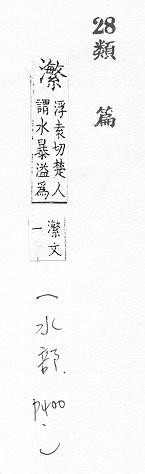 28
類篇
瀿
浮袁切楚人
謂水暴溢爲
瀿文
一
(水部. p400.)